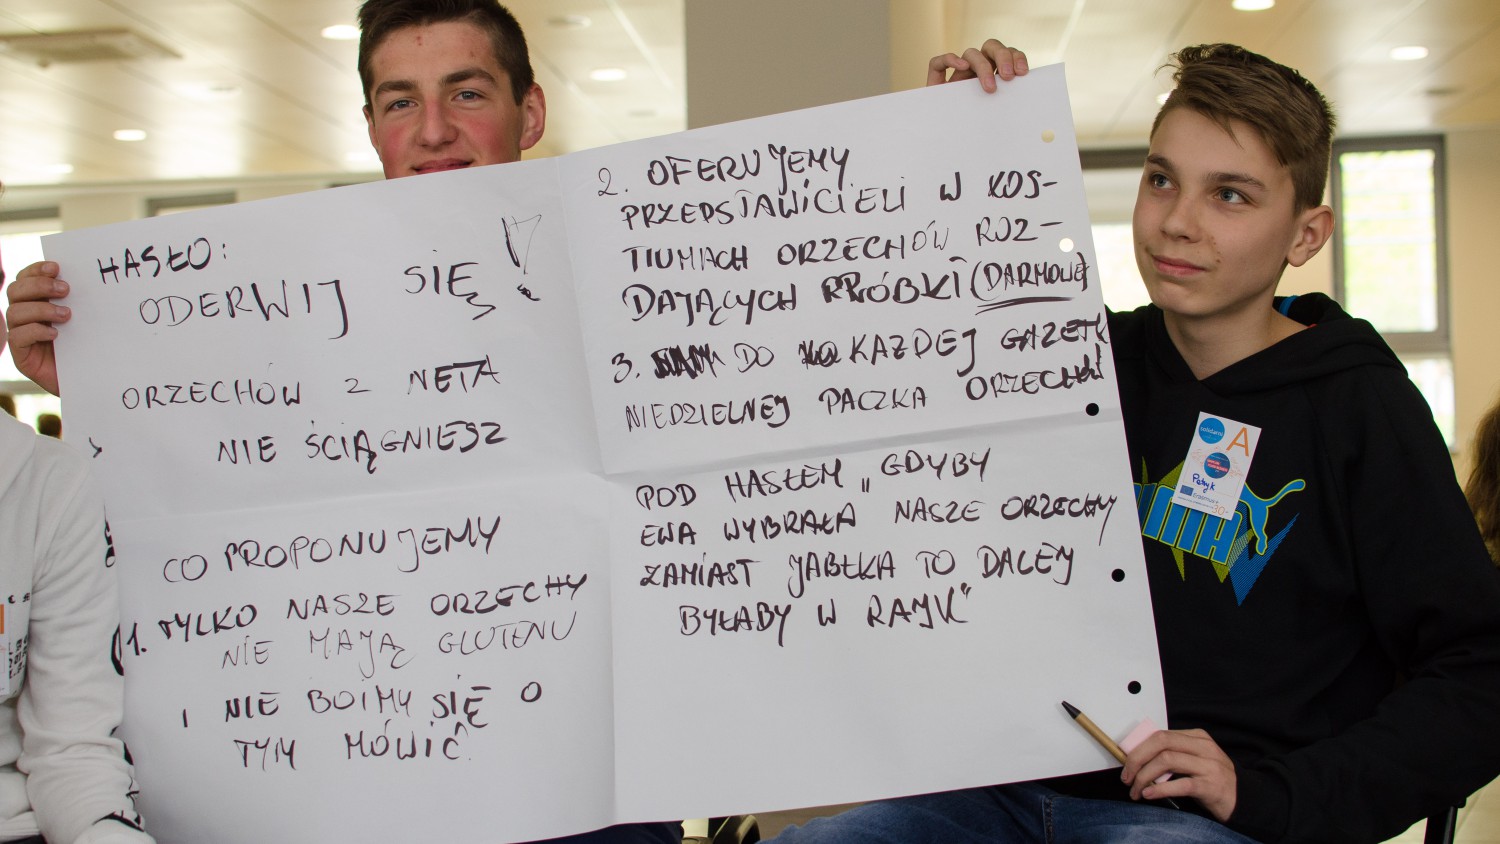 HASŁO:
ODERWIJ SIĘ!
ORZECHÓW Z NETA
NIE ŚCIĄGNIESZ
CO PROPONUJEMY
1. TYLKO NASZE ORZECHY
NIE MAJĄ GLUTENU
I NIE BOIMY SIĘ O
TYM MÓWIĆ.
2. OFERUJEMY
PRZEDSTAWICIELI W KOS-
TIUMACH ORZECHÓW ROZ-
DAJĄCYCH PRÓBKI (DARMOWE)
3. DO KAŻDEJ GAZETY
NIEDZIELNEJ PACZKA ORZECHÓW
POD HASŁEM „GDYBY
EWA WYBRAŁA NASZE ORZECHY
ZAMIAST JABŁKA TO DALEJ
BYŁABY W RAJU"
A
Patryk
Erasmus+
30
PUMA